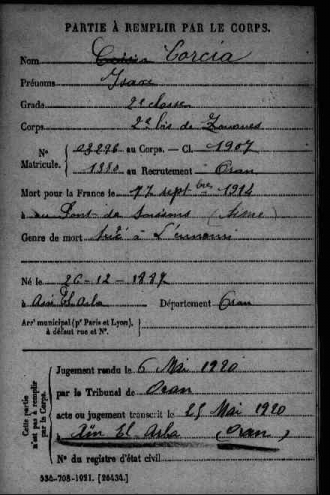 PARTIE À REMPLIR PAR LE CORPS.
Nom Corcia
Prénoms Isaac
Grade 2e classe
Corps 2e bis de Zouaves
N° 03296 au Corps. — Cl. 1907
Matricule. 1380 au Recrutement Oran
Mort pour la France le 17 septbre 1914
à au Pont de Soissons (Aisne)
Genre de mort tué à l'ennemi
Né le 26-12-1887
à Aïn El Arba Département Oran
Arrt municipal (pr Paris et Lyon),
à défaut rue et N°.
Cette partie
n'est pas à remplir
par le Corps.
Jugement rendu le 6 Mai 1920
par le Tribunal de Oran
acte ou jugement transcrit le 25 Mai 1920
à Aïn El Arba (Oran)
N° du registre d'état civil
534-708-1921. [26434.]